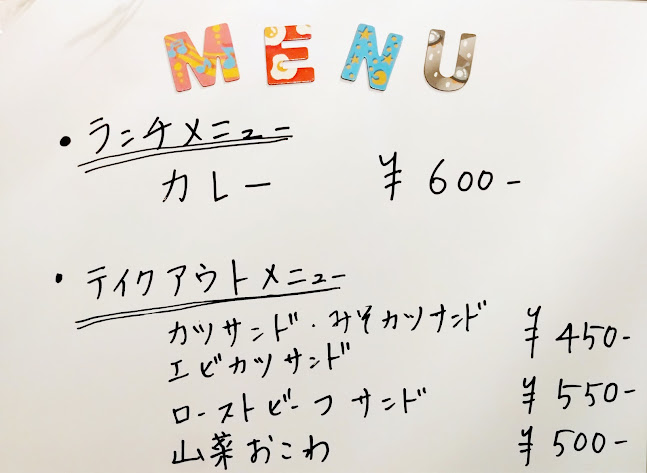 MENU
・ランチメニュー
カレー ¥600-
・テイクアウトメニュー
カツサンド・みそカツサンド ¥450-
エビカツサンド
ローストビーフサンド ¥550-
山菜おこわ ¥500-